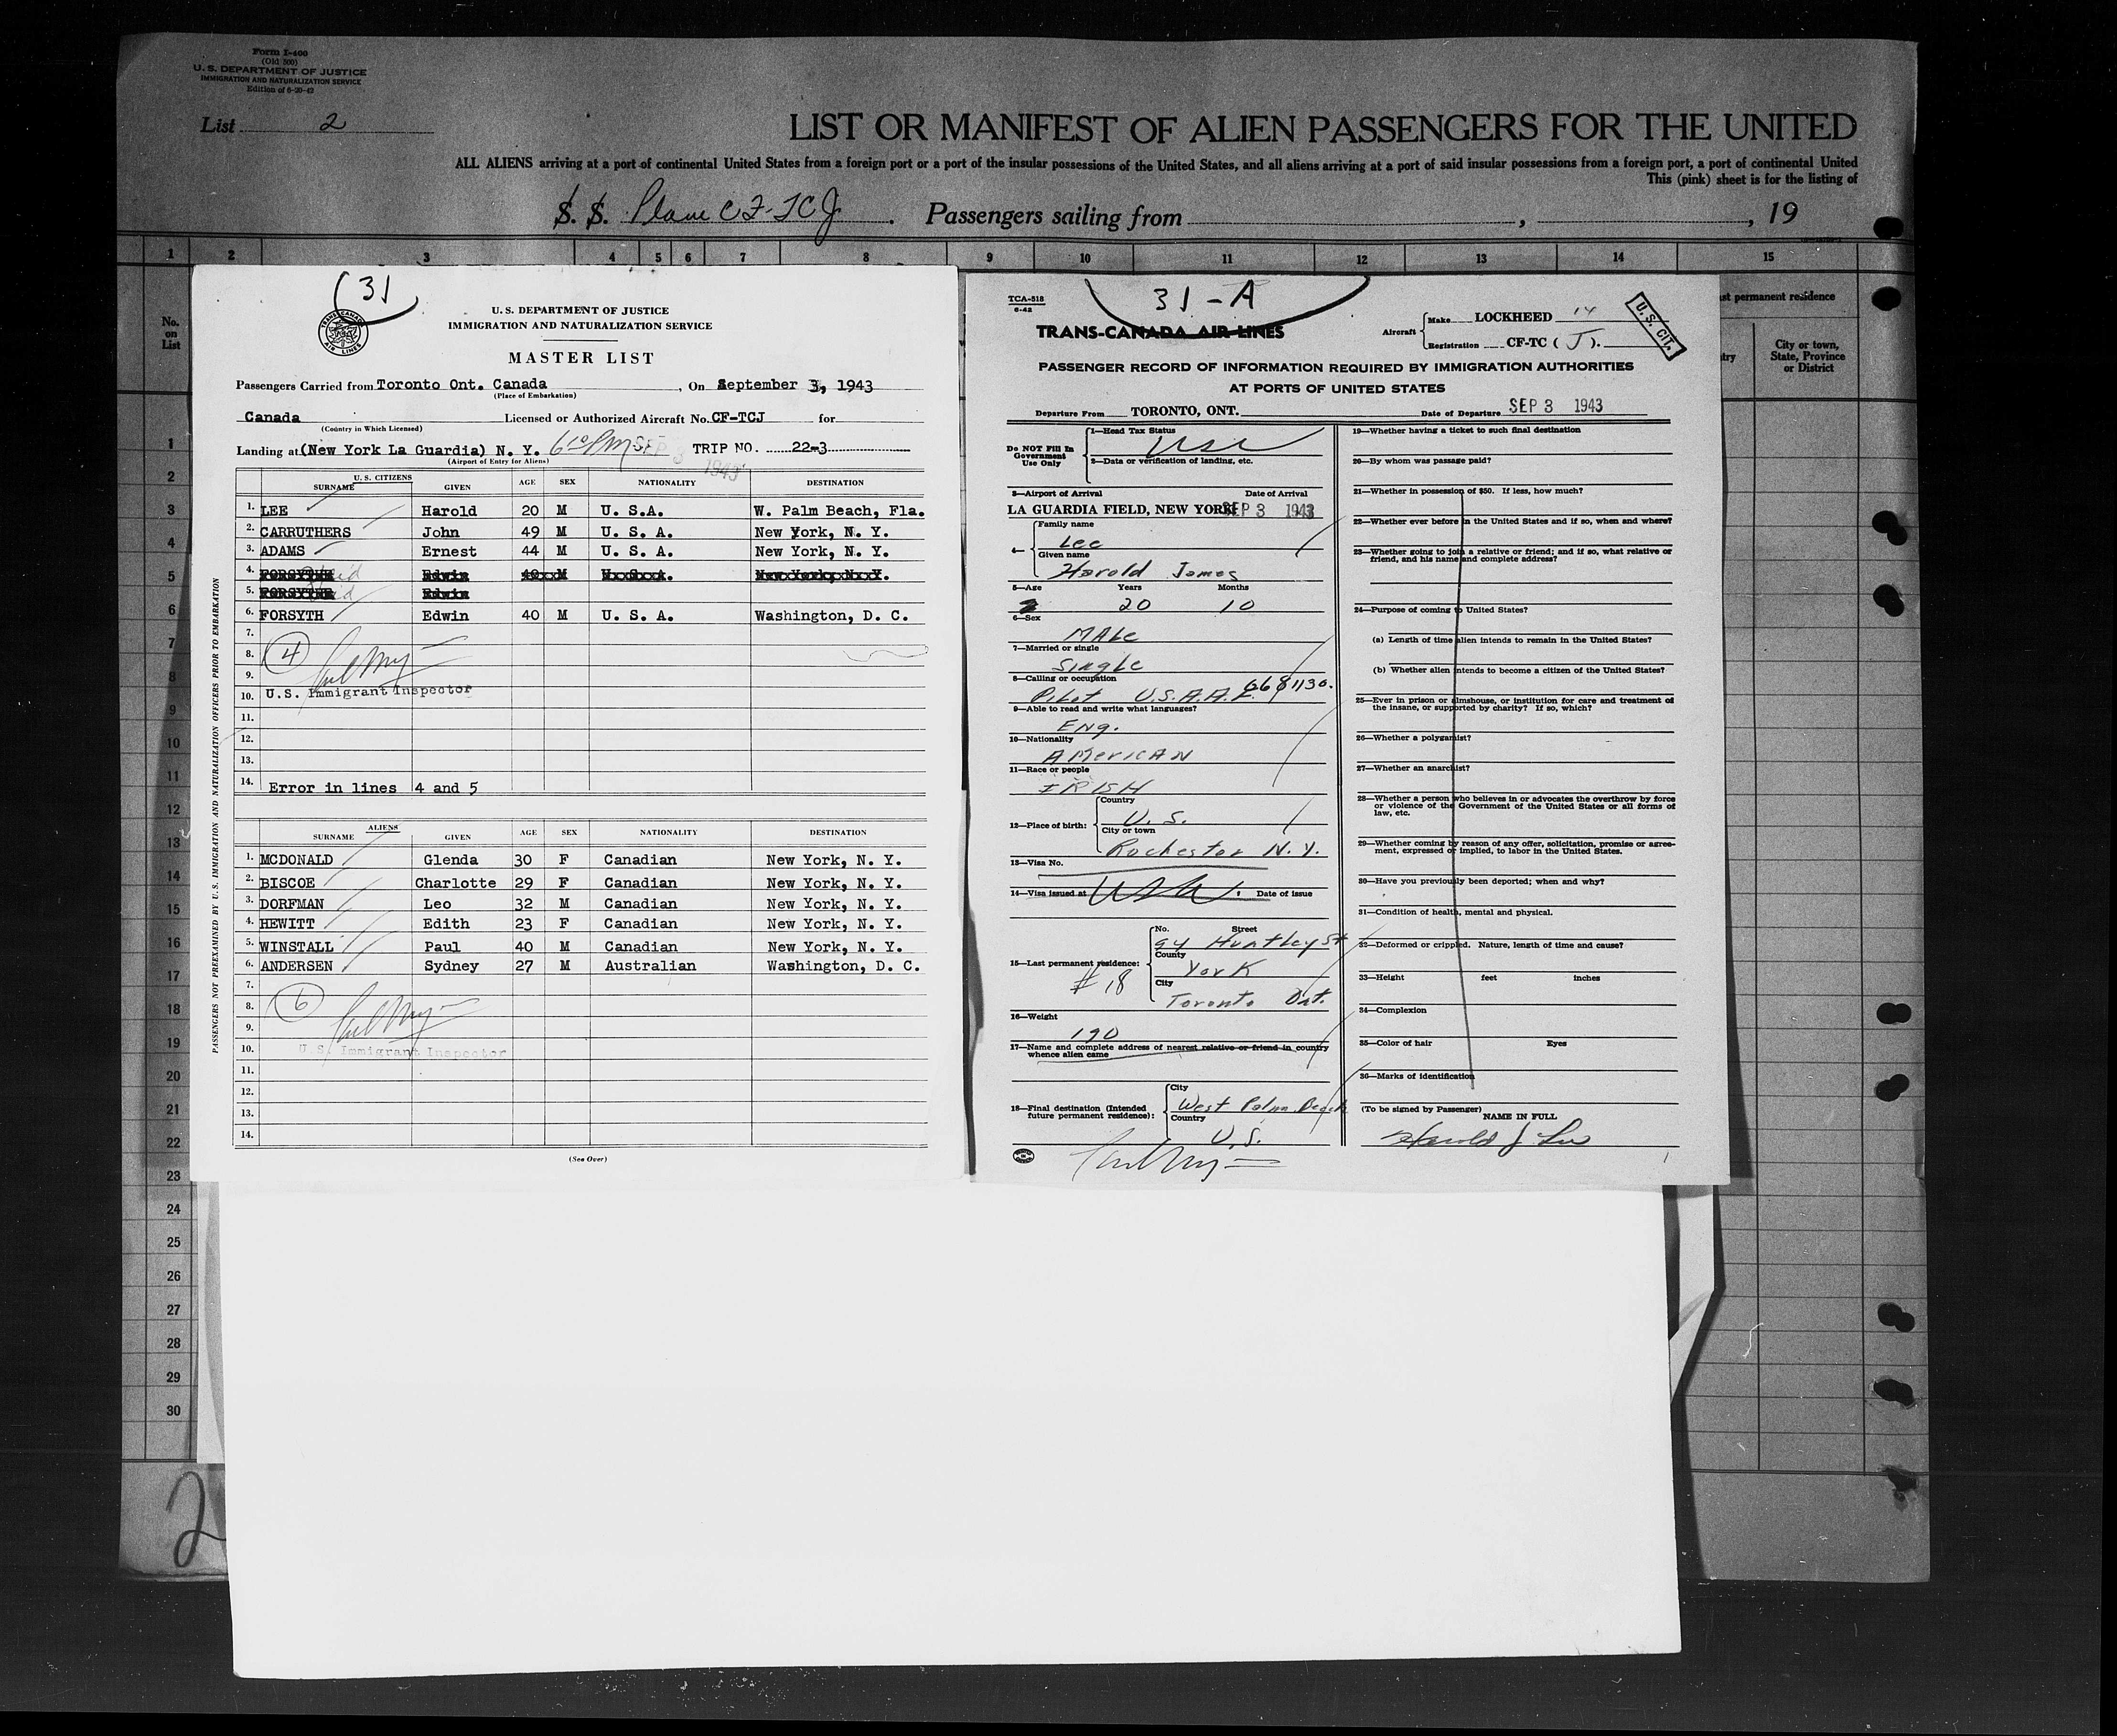 Form I-400
(Old 500)
U. S. DEPARTMENT OF JUSTICE
IMMIGRATION AND NATURALIZATION SERVICE
Edition of 6-20-42
List 2
LIST OR MANIFEST OF ALIEN PASSENGERS FOR THE UNITED
ALL ALIENS arriving at a port of continental United States from a foreign port or a port of the insular possessions of the United States, and all aliens arriving at a port of said insular possessions from a foreign port, a port of continental United
This (pink) sheet is for the listing of
S. S. Plane CF-TCJ. Passengers sailing from , , 19
1 2 3 4 5 6 7 8 9 10 11 12 13 14 15
No. on List
st permanent residence
try
City or town, State, Province or District
1
2
3
4
5
6
7
8
9
10
11
12
13
14
15
16
17
18
19
20
21
22
23
24
25
26
27
28
29
30
2
(31)
TRANS-CANADA AIR LINES
U. S. DEPARTMENT OF JUSTICE
IMMIGRATION AND NATURALIZATION SERVICE
MASTER LIST
Passengers Carried from Toronto Ont. Canada, On September 3, 1943
(Place of Embarkation)
Canada Licensed or Authorized Aircraft No. CF-TCJ for
(Country in Which Licensed)
Landing at (New York La Guardia) N. Y. 6 10 PM SEP 3 1943 TRIP NO. 22-3
(Airport of Entry for Aliens)
PASSENGERS NOT PREEXAMINED BY U. S. IMMIGRATION AND NATURALIZATION OFFICERS PRIOR TO EMBARKATION
U. S. CITIZENS
SURNAME GIVEN AGE SEX NATIONALITY DESTINATION
1. LEE Harold 20 M U. S.A. W. Palm Beach, Fla.
2. CARRUTHERS John 49 M U. S. A. New York, N. Y.
3. ADAMS Ernest 44 M U. S. A. New York, N. Y.
4. FORSYTHE Edwin 40xxxM UxxSxxxA. NewxYork,xNxxY.
5. FORSYTHE Edwin
6. FORSYTH Edwin 40 M U. S. A. Washington, D. C.
7.
8. (4)
9.
10. U.S. Immigrant Inspector
11.
12.
13.
14. Error in lines 4 and 5
ALIENS
SURNAME GIVEN AGE SEX NATIONALITY DESTINATION
1. MCDONALD Glenda 30 F Canadian New York, N. Y.
2. BISCOE Charlotte 29 F Canadian New York, N. Y.
3. DORFMAN Leo 32 M Canadian New York, N. Y.
4. HEWITT Edith 23 F Canadian New York, N. Y.
5. WINSTALL Paul 40 M Canadian New York, N. Y.
6. ANDERSEN Sydney 27 M Australian Washington, D. C.
7.
8. (6)
9.
10. U.S. Immigrant Inspector
11.
12.
13.
14.
(See Over)
TCA-518
6-42
31-A
TRANS-CANADA AIR LINES
Aircraft Make LOCKHEED 14
Registration CF-TC (J).
U. S. CIT.
PASSENGER RECORD OF INFORMATION REQUIRED BY IMMIGRATION AUTHORITIES
AT PORTS OF UNITED STATES
Departure From TORONTO, ONT. Date of Departure SEP 3 1943
Do NOT Fill In Government Use Only
1—Head Tax Status
USC
2—Data or verification of landing, etc.
3—Airport of Arrival Date of Arrival
LA GUARDIA FIELD, NEW YORK SEP 3 1943
4— Family name
Lee
Given name
Harold James
5—Age Years Months
20 10
6—Sex
MALe
7—Married or single
Single
8—Calling or occupation
Pilot U.S.A.A.F. 0681130.
9—Able to read and write what languages?
Eng.
10—Nationality
AMERICAN
11—Race or people
IRISH
12—Place of birth: Country
U. S.
City or town
Rochester N. Y.
13—Visa No.
14—Visa issued at Date of issue
15—Last permanent residence: No. Street
94 Huntley St
County
York
# 18
City
Toronto Ont.
16—Weight
190
17—Name and complete address of nearest relative or friend in country
whence alien came
18—Final destination (Intended future permanent residence): City
West Palm Beach
Country
U. S.
19—Whether having a ticket to such final destination
20—By whom was passage paid?
21—Whether in possession of $50. If less, how much?
22—Whether ever before in the United States and if so, when and where?
23—Whether going to join a relative or friend; and if so, what relative or
friend, and his name and complete address?
24—Purpose of coming to United States?
(a) Length of time alien intends to remain in the United States?
(b) Whether alien intends to become a citizen of the United States?
25—Ever in prison or almshouse, or institution for care and treatment of
the insane, or supported by charity? If so, which?
26—Whether a polygamist?
27—Whether an anarchist?
28—Whether a person who believes in or advocates the overthrow by force
or violence of the Government of the United States or all forms of
law, etc.
29—Whether coming by reason of any offer, solicitation, promise or agree-
ment, expressed or implied, to labor in the United States.
30—Have you previously been deported; when and why?
31—Condition of health, mental and physical.
32—Deformed or crippled. Nature, length of time and cause?
33—Height feet inches
34—Complexion
35—Color of hair Eyes
36—Marks of identification
(To be signed by Passenger)
NAME IN FULL
Harold J Lee